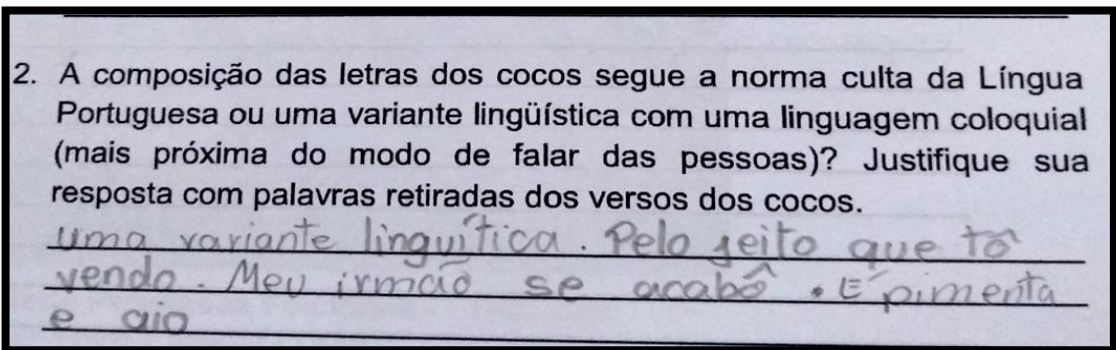 2. A composição das letras dos cocos segue a norma culta da Língua
Portuguesa ou uma variante lingüística com uma linguagem coloquial
(mais próxima do modo de falar das pessoas)? Justifique sua
resposta com palavras retiradas dos versos dos cocos.
uma variante linguítica. Pelo jeito que tô
vendo. Meu irmão se acabô. É pimenta
e aio